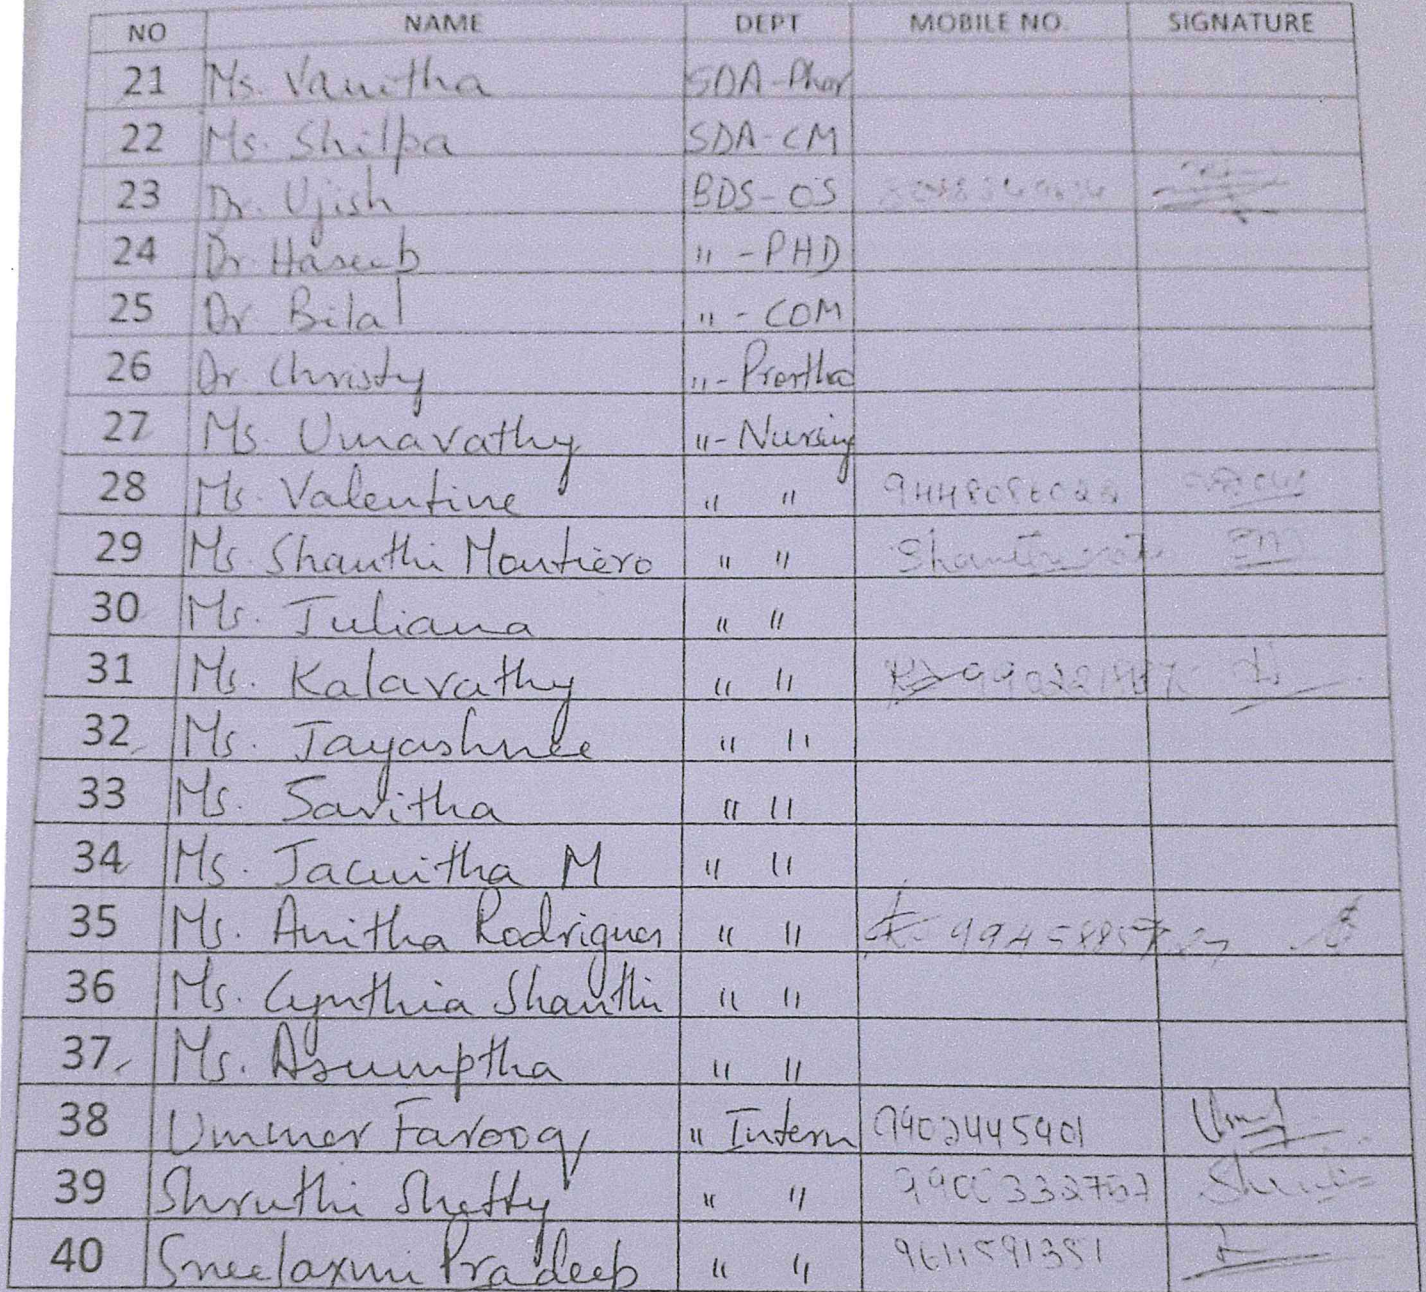 NO NAME DEPT MOBILE NO. SIGNATURE
21 Ms. Vanitha SDA-Phar
22 Ms. Shilpa SDA-CM
23 Dr. Ujish BDS-OS
24 Dr Haseeb " -PHD
25 Dr Bilal " - COM
26 Dr. Christy "
27 Ms. Umavathy "-Nursing
28 Ms. Valentine " "
29 Ms. Shanthi Montiero " "
30 Ms. Juliana " "
31 Ms. Kalavathy " "
32 Ms. Jayashree " "
33 Ms. Savitha " "
34 Ms. Jacintha M " "
35 Ms. Anitha Rodrigues " "
36 Ms. Cynthia Shanthi " "
37 Ms. Asumptha " "
38 Ummer Farooq " Intern
39 Shruthi Shetty " "
40 Sreelaxmi Pradeep " " 9611591351